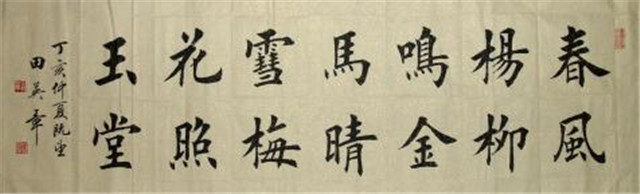 春風
楊柳
鳴金
馬晴
雪梅
花照
玉堂
丁亥仲夏既望
田英章